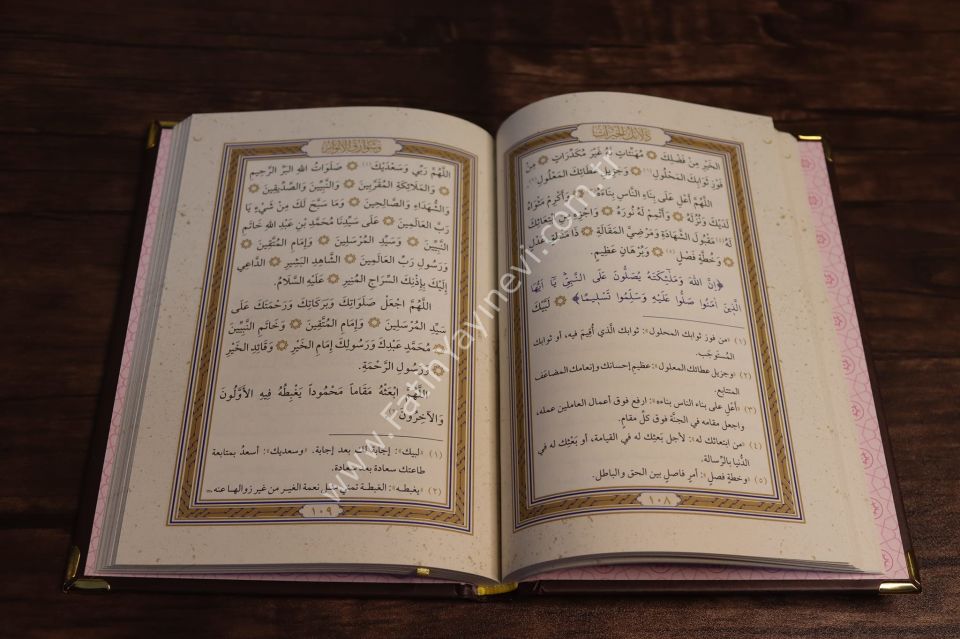 دلائل الخيرات
الخَيْرِ مِنْ فَضْلِكَ ۞ مُهَنَّئَاتٍ لَهُ غَيْرَ مُكَدَّرَاتٍ ۞ مِنْ
فَوْزِ ثَوَابِكَ المَحْلُولِ(١) ۞ وَجَزِيلِ عَطَائِكَ المَعْلُولِ(٢).
اللَّهُمَّ أَعْلِ عَلَى بِنَاءِ النَّاسِ بِنَاءَهُ(٣) ۞ وَأَكْرِمْ مَثْوَاهُ
لَدَيْكَ وَنُزُلَهُ ۞ وَأَتْمِمْ لَهُ نُورَهُ ۞ وَاجْزِهِ مِنِ ابْتِعَاثِكَ
لَهُ(٤) مَقْبُولَ الشَّهَادَةِ وَمَرْضِيَّ المَقَالَةِ ۞ ذَا مَنْطِقٍ عَدْلٍ
۞ وَخُطَّةٍ فَصْلٍ(٥) ۞ وَبُرْهَانٍ عَظِيمٍ.
﴿إِنَّ اللهَ وَمَلٰٓئِكَتَهُ يُصَلُّونَ عَلَى النَّبِيِّ يَآ اَيُّهَا
الَّذِينَ اٰمَنُوا صَلُّوا عَلَيْهِ وَسَلِّمُوا تَسْلِيمًا﴾ ۞ لَبَّيْكَ
(١) «من فوز ثوابك المحلول»: ثوابك الَّذي أُقِيمَ فيه، أو ثوابك
المُستَوجَب.
(٢) «وجزيل عطائك المعلول»: عظيم إحسانك وإنعامك المضاعَف
المتتابع.
(٣) «أعْلِ على بناء الناس بناءه»: ارفع فوق أعمال العاملين عمله،
واجعل مقامه في الجنَّة فوق كلِّ مقام.
(٤) «من ابتعاثك له»: لأجل بَعثِك له في القيامة، أو بَعْثِك له في
الدُّنيا بالرِّسالة.
(٥) «وخطةٍ فصلٍ»: أمرٍ فاصلٍ بين الحق والباطل.
١٠٨
وشوارق الأنوار
اللَّهُمَّ رَبِّي وَسَعْدَيْكَ(١) ۞ صَلَوَاتُ اللهِ البَرِّ الرَّحِيمِ
۞ وَالمَلَائِكَةِ المُقَرَّبِينَ ۞ وَالنَّبِيِّينَ وَالصِّدِّيقِينَ ۞
وَالشُّهَدَاءِ وَالصَّالِحِينَ ۞ وَمَا سَبَّحَ لَكَ مِنْ شَيْءٍ يَا
رَبَّ العَالَمِينَ ۞ عَلَى سَيِّدِنَا مُحَمَّدِ بْنِ عَبْدِ اللهِ خَاتَمِ
النَّبِيِّينَ ۞ وَسَيِّدِ المُرْسَلِينَ ۞ وَإِمَامِ المُتَّقِينَ ۞
وَرَسُولِ رَبِّ العَالَمِينَ ۞ الشَّاهِدِ البَشِيرِ ۞ الدَّاعِي
إِلَيْكَ بِإِذْنِكَ السِّرَاجِ المُنِيرِ ۞ عَلَيْهِ السَّلَامُ.
اللَّهُمَّ اجْعَلْ صَلَوَاتِكَ وَبَرَكَاتِكَ وَرَحْمَتَكَ عَلَى
سَيِّدِ المُرْسَلِينَ ۞ وَإِمَامِ المُتَّقِينَ ۞ وَخَاتَمِ النَّبِيِّينَ
۞ مُحَمَّدٍ عَبْدِكَ وَرَسُولِكَ إِمَامِ الخَيْرِ ۞ وَقَائِدِ الخَيْرِ
۞ وَرَسُولِ الرَّحْمَةِ.
اللَّهُمَّ ابْعَثْهُ مَقَاماً مَحْمُوداً يَغْبِطُهُ فِيهِ الأَوَّلُونَ
وَالآخِرُونَ(٢)
(١) «لبيك»: إجابةً لك بعد إجابة. «وسعديك»: أسعدُ بمتابعة
طاعتك سعادة بعد سعادة.
(٢) «يغبطه»: الغبطة تمنّي مثل نعمة الغير من غير زوالها عنه
١٠٩
www.FatihYayinevi.com.tr